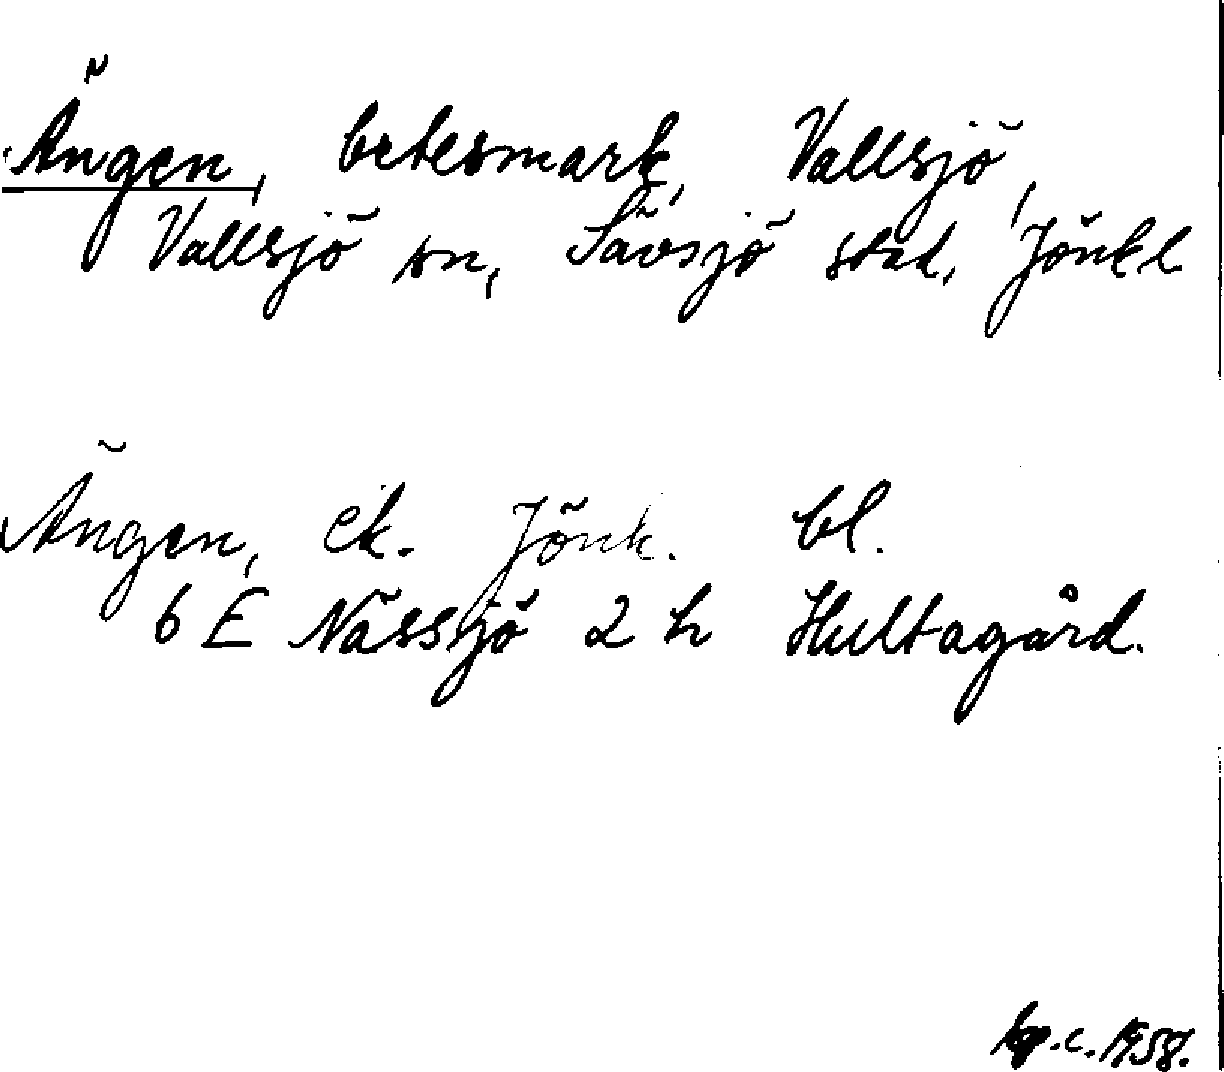 Ängen, betesmark, Vallsjö,
Vallsjö sn, Sävsjö stad, Jönk l.
Ängen, ek. Jönk. bl.
6 E Nässjö 2 h Hultagård.
c. 1958.